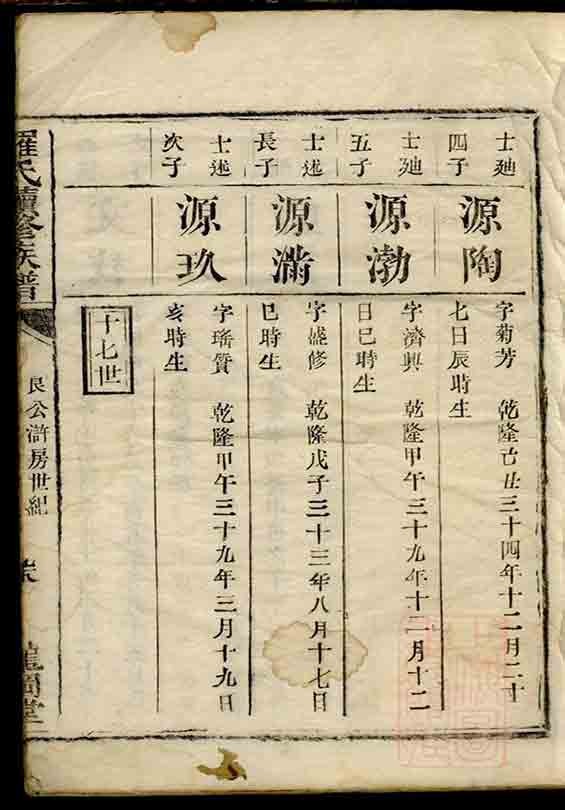 士廸
四子
源陶
字菊芳　乾隆己丑三十四年十二月二十
七日辰時生
士廸
五子
源渤
字濟興　乾隆甲午三十九年十二月十二
日巳時生
士述
長子
源滿
字盛修　乾隆戊子三十三年八月十七日
巳時生
士述
次子
源玖
字瑤質　乾隆甲午三十九年三月十九日
亥時生
十七世
羅氏續修族譜
艮公滸房世紀